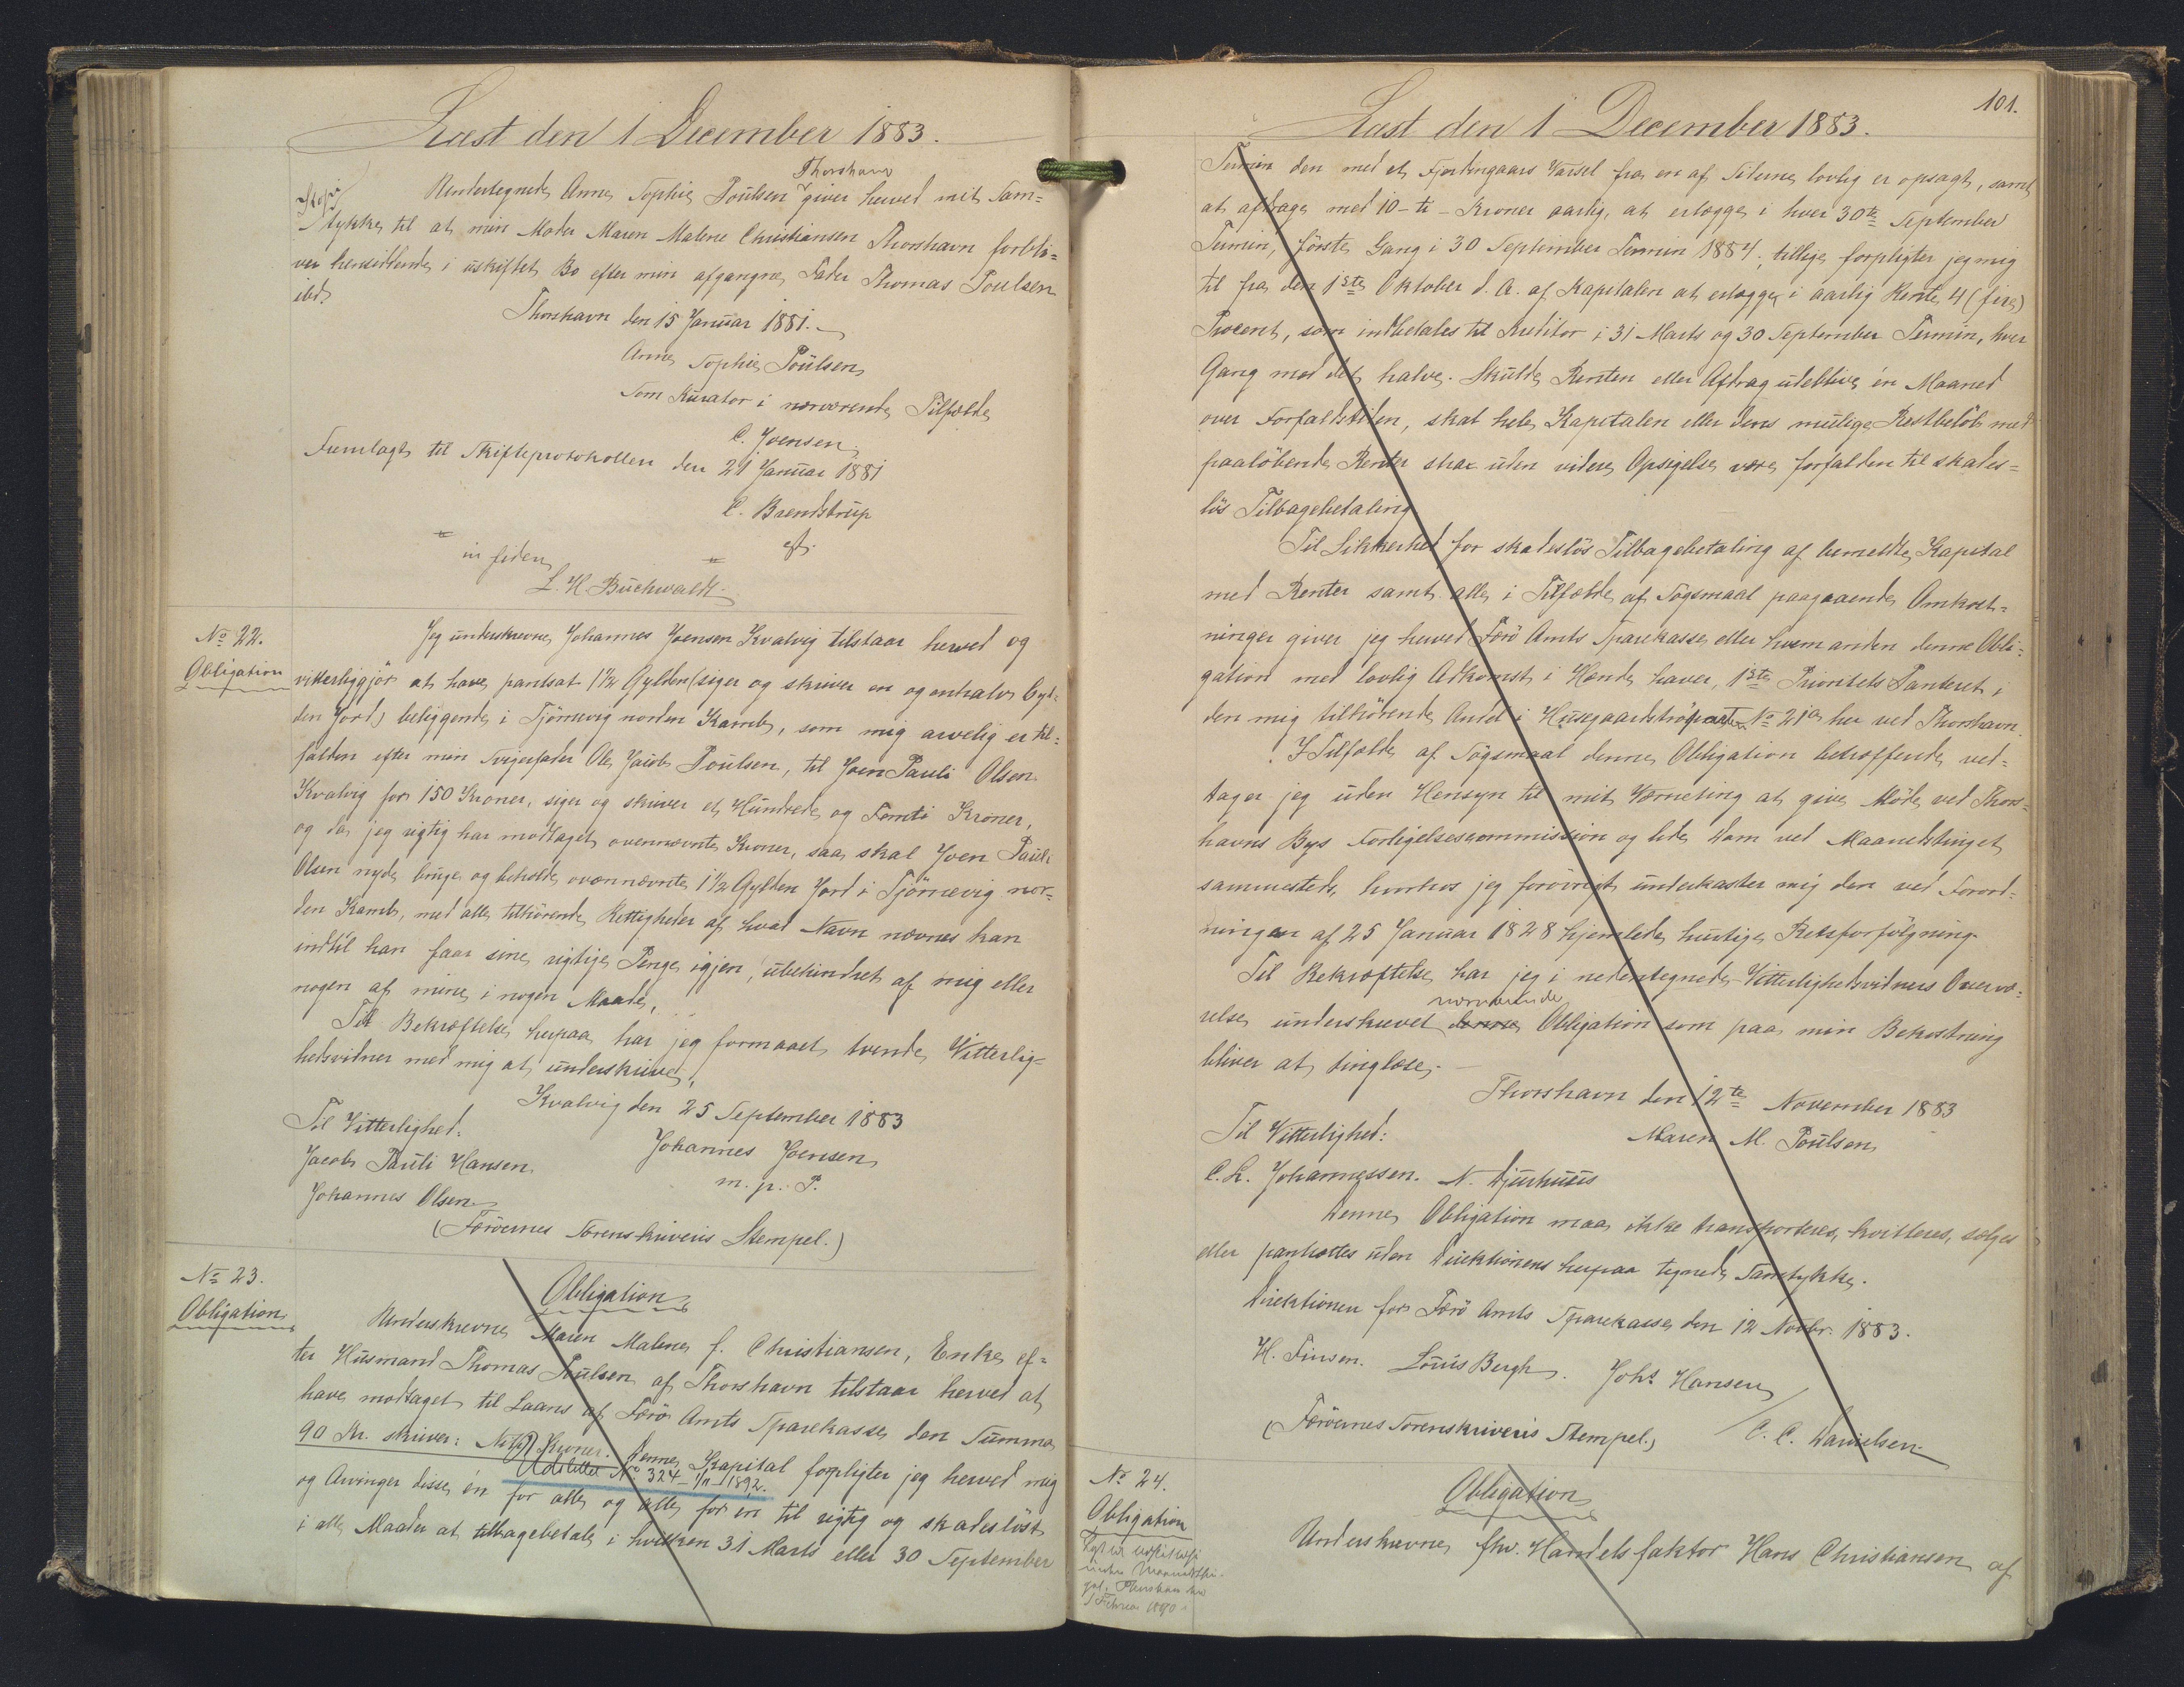 Læst den 1 December 1883.
Kopi
Thorshavn
Undertegnede Anne Sophie Poulsen giver herved mit Sam=
tykke til at min Moder Maren Malene Christiansen Thorshavn forbli=
ver hensiddende i uskiftet Bo efter min afgangne Fader Thomas Poulsen
ibd.
Thorshavn den 15 Januar 1881.
Anne Sophie Poulsen
Som Kurator i nærværende Tilfælde
C. Joensen.
Fremlagt til Skifteprotokollen den 21 Januar 1881
C. Brendstrup
cft.
in fidem
L. H. Buchwaldt.
No 22.
Obligation
Jeg underskrevne Johannes Joensen Kvalvig tilstaar herved og
vitterliggjør at have pantsat 1 1/2 Gylden (siger og skriver en og en halv Gyl=
den Jord) beliggende i Tjørnevig norden Kamb, som mig arvelig er til=
falden efter min Svigerfader Ole Jacob Poulsen, til Joen Pauli Olsen
Kvalvig for 150 Kroner, siger og skriver et Hundrede og Femti Kroner,
og da jeg rigtig har modtaget ovennævnte Kroner, saa skal Joen Pauli
Olsen nyde, bruge og beholde ovennævnte 1 1/2 Gylden Jord i Tjörnevig nor=
den Kamb, med alle tilhörende Rettigheder af hvad Navn nævnes kan
indtil han faar sine rigtige Penge igjen, ubehindret af mig eller
nogen af mine i nogen Maade.
Til Bekræftelse herpaa har jeg formaaet tvende Vitterlig=
hedsvidner med mig at underskrive.
Kvalvig den 25 September 1883
Til Vitterlighed:
Johannes Joensen
Jacob Pauli Hansen.
m. p. P.
Johannes Olsen
(Færöernes Sorenskriveris Stempel.)
No 23.
Obligation
Obligation
Underskrevne Maren Malene f. Christiansen, Enke ef=
ter Husmand Thomas Poulsen af Thorshavn tilstaar herved at
have modtaget til Laans af Færö Amts Sparekasse den Summa
90 Kr. skriver: Niti Kroner. Denne Kapital forpligter jeg herved mig
Udslettet No 324 - 1/11 1892.
og Arvinger disse én for alle og alle for én til rigtig og skadeslöst
i alle Maader at tilbagebetale i hvilken 31 Marts eller 30 September
101.
Læst den 1 December 1883.
Termin den med et Fjerdingaars Varsel fra en af Siderne lovlig er opsagt, samt
at afdrage med 10 - ti - Kroner aarlig, at erlægge i hver 30te September
Termin, förste Gang i 30 September Termin 1884; tillige forpligter jeg mig
til fra den 1ste Oktober d. A. af Kapitalen at erlægge i aarlig Rente 4 (fire)
Procent, som indbetales til Kreditor i 31 Marts og 30 September Termin, hver
Gang med det halve. Skulde Renten eller Afdrag udeblive én Maaned
over Forfaldstiden, skal hele Kapitalen eller dens mulige Restbelöb med
paalöbende Renter strax uden videre Opsigelse være forfalden til skades=
lös Tilbagebetaling
Til Sikkerhed for skadeslös Tilbagebetaling af bemeldte Kapital
med Renter samt alle i Tilfælde af Sögsmaal paagaaende Omkost=
ninger giver jeg herved Færö Amts Sparekasse eller hvem anden denne Obli=
gation med lovlig Adkomst i Hænde haver, 1ste Prioritets Panteret i
den mig tilhörende Andel i Husegaardströparten No 21a her ved Thorshavn.
I Tilfælde af Sögsmaal denne Obligation betræffende ved=
tager jeg uden Hensyn til mit Værneting at give Möde ved Thors=
havns Bys Forligelsescommission og lide Dom ved Maanedstinget
sammesteds, hvorhos jeg forövrigt underkaster mig den ved Forord=
ningen af 25 Januar 1828 hjemlede hurtige Retsforfölgning.
Til Bekræftelse har jeg i nedentegnede Vitterlighedsvidners Overvæ=
nærværende
relse underskrevet denne Obligation som paa min Bekostning
bliver at tinglæse.
Thorshavn den 12te November 1883
Til Vitterlighed:
Maren M. Poulsen
C. L. Johannessen. N. Djurhuus
Denne Obligation maa ikke transporteres, kvitteres, sælges
eller pantsættes uden Direktionens herpaa tegnede Samtykke.
Direktionen for Færö Amts Sparekasse den 12 Novbr. 1883.
H. Finsen. Louis Bergh. Johs Hansen
/ C. C. Danielsen.
(Færöernes Sorenskriveris Stempel.)
No 24.
Obligation
Obligation
Underskrevne fhv. Handelsfaktor Hans Christiansen af